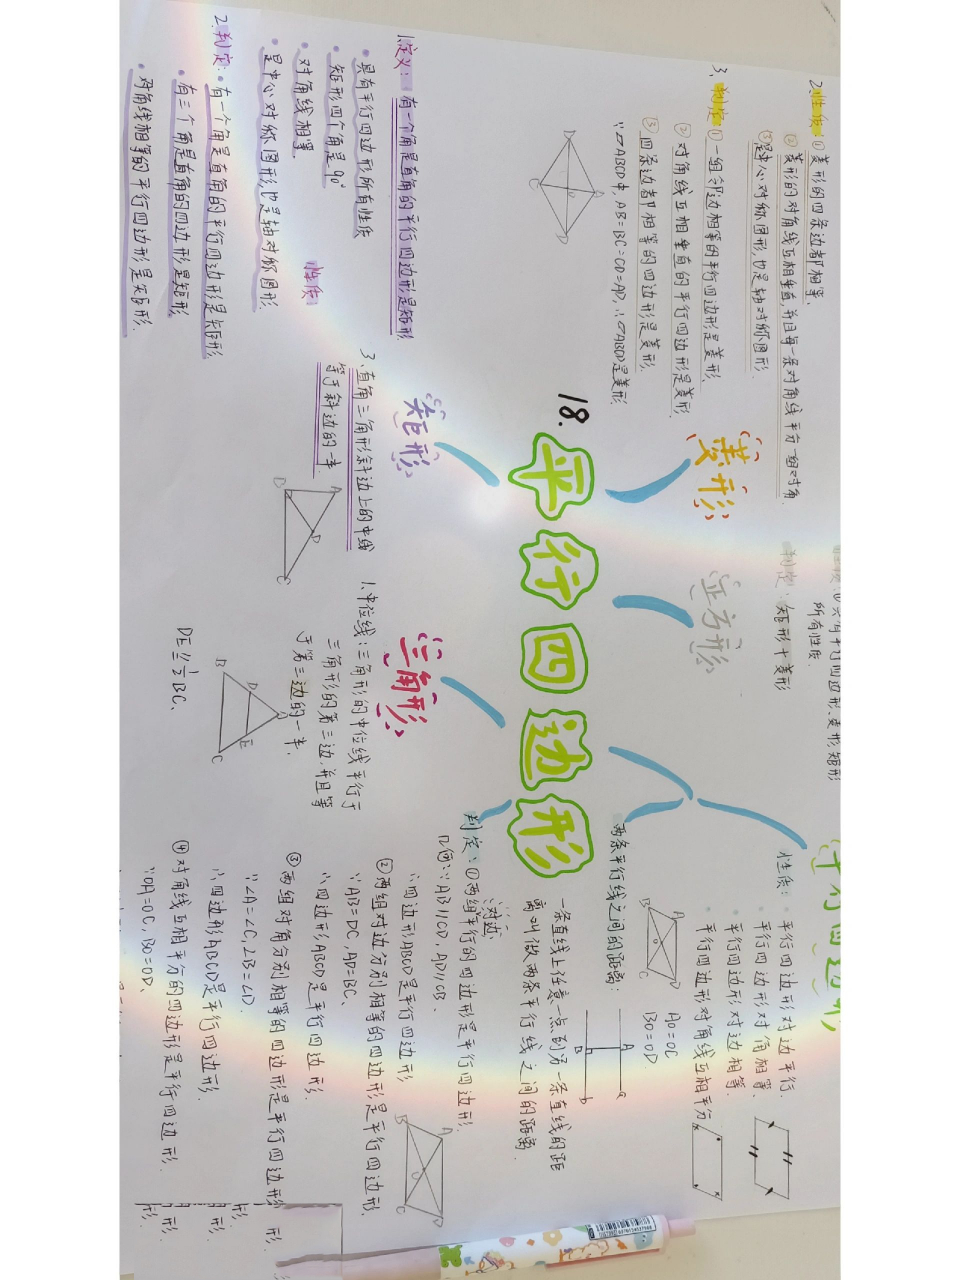 18.
平行四边形
菱形
2.性质:①菱形的四条边都相等.
②菱形的对角线互相垂直,并且每一条对角线平分一组对角.
③是中心对称图形,也是轴对称图形.
3.判定①一组邻边相等的平行四边形是菱形.
②对角线互相垂直的平行四边形是菱形.
③四条边都相等的四边形是菱形.
∵▱ABCD中,AB=BC=CD=AD,∴▱ABCD是菱形.
正方形
所有性质.
判定:矩形+菱形
性质:
平行四边形对边平行.
平行四边形对角相等.
平行四边形对边相等.
平行四边形对角线互相平分
A
B
C
D
O
AO=OC
BO=OD
两条平行线之间的距离:
一条直线上任意一点到另一条直线的距
离叫做两条平行线之间的距离.
A
a
B
b
判定:①两组对边平行的四边形是平行四边形.
几何:∵AB∥CD,AD∥CB.
∴四边形ABCD是平行四边形
②两组对边分别相等的四边形是平行四边形
∵AB=DC,AD=BC.
∴四边形ABCD是平行四边形.
③两组对角分别相等的四边形是平行四边形
∵∠A=∠C,∠B=∠D.
∴四边形ABCD是平行四边形.
④对角线互相平分的四边形是平行四边形.
∵OA=OC,BO=OD.
A
B
C
D
O
矩形
1.定义:有一个角是直角的平行四边形是矩形
具有平行四边形所有性质
矩形四个角是90°
对角线相等
是中心对称图形,也是轴对称图形.
性质
2.判定:有一个角是直角的平行四边形是矩形
有三个角是直角的四边形是矩形
对角线相等的平行四边形是矩形.
3.直角三角形斜边上的中线
等于斜边的一半.
A
B
C
D
三角形
1.中位线:三角形的中位线平行于
三角形的第三边,并且等
于第三边的一半.
A
B
C
D
E
DE∥½BC.
形.
形.
形.
形.